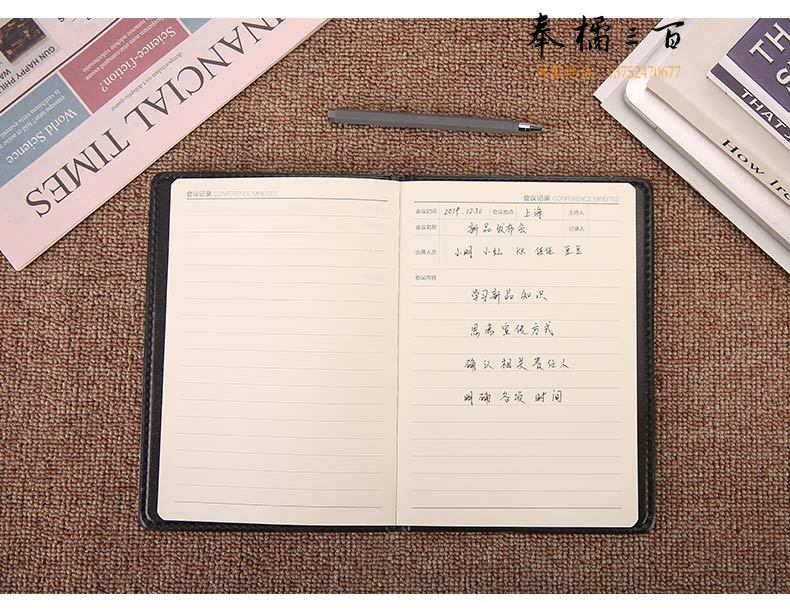 奉橘三百
13752470677
FINANCIAL TIMES
Science-fiction?
World Science
GUN HAPPY PHIL
THAT'S
How Iro
会议记录 CONFERENCE MINUTES
会议记录 CONFERENCE MINUTES
会议时间 2019.12.30 会议地点 上海 主持人
会议名称 新品发布会 记录人
出席人员 小明 小红 KK 佳佳 豆豆
会议内容
学习新品知识
思考宣传方式
确认相关责任人
明确各项时间